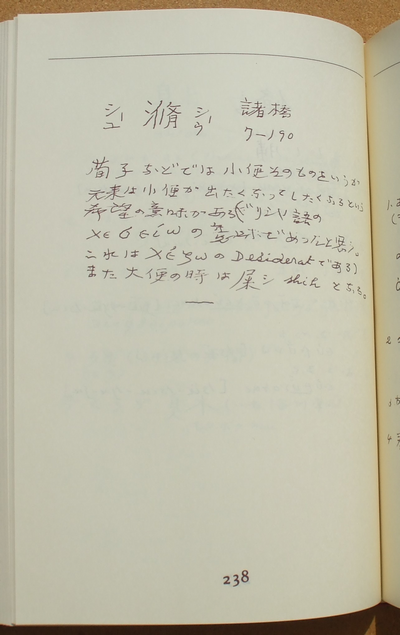 シュ 滫 シウ 諸橋
7-190
荀子などでは小便そのものをいうが
元来は小便が出たくなってしたくなるという
希望の意味がある(ギリシヤ語の
χεσείω の 意味であったと思う。
これは χέζω の Desiderat である)
また大便の時は屎シ shih となる。
238